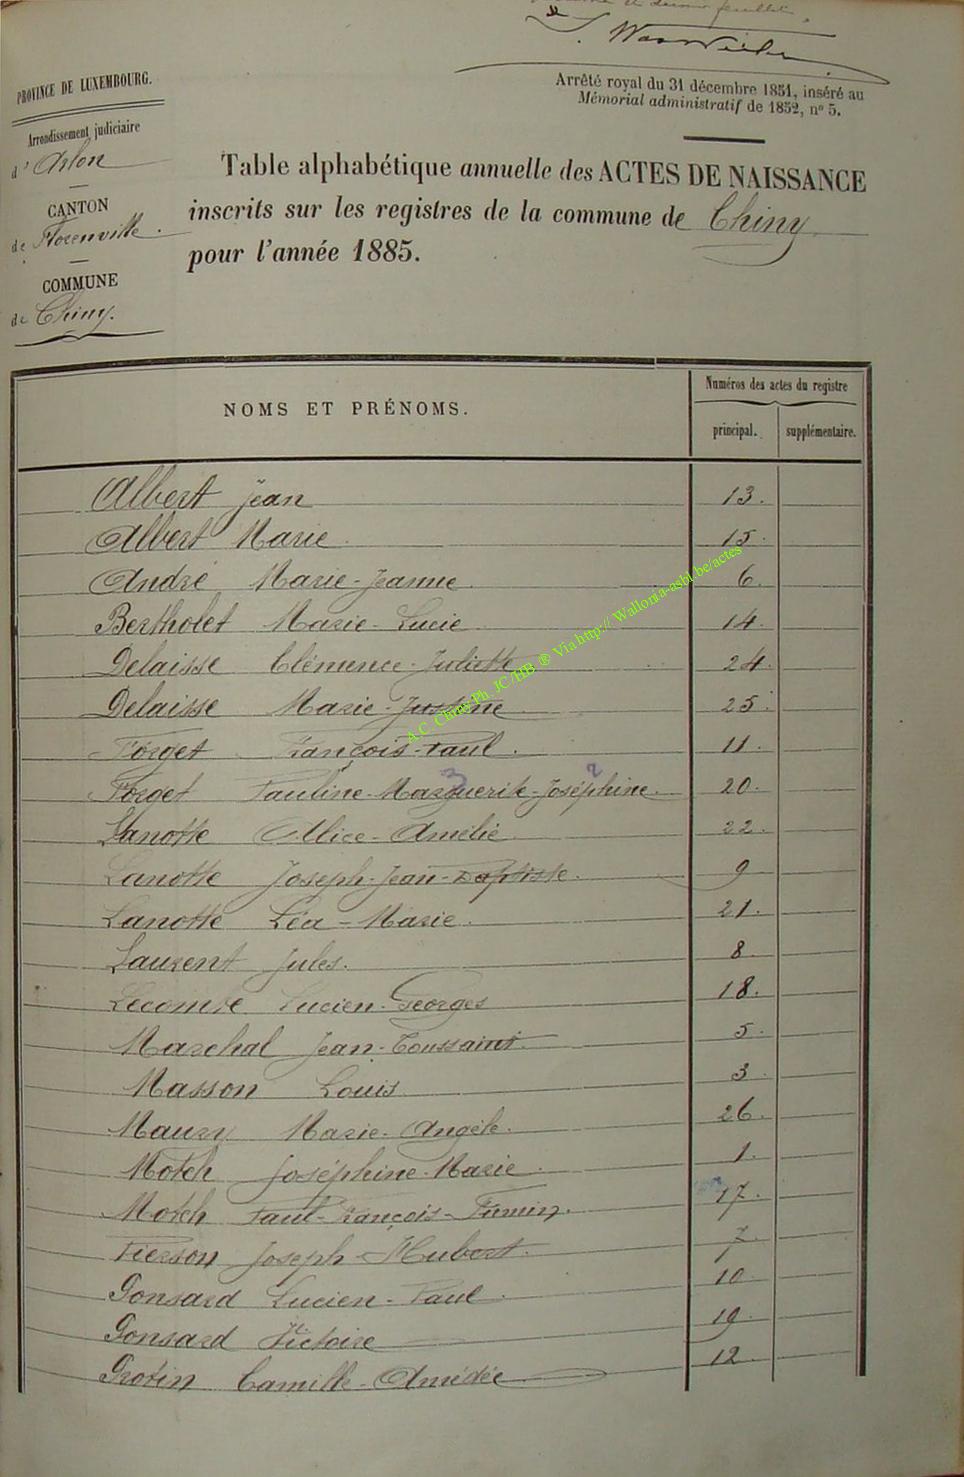 PROVINCE DE LUXEMBOURG.
Arrondissement judiciaire
d'Arlon
CANTON
de Florenville.
COMMUNE
de Chiny.
Arrêté royal du 31 décembre 1851, inséré au
Mémorial administratif de 1852, n° 5.
Table alphabétique annuelle des ACTES DE NAISSANCE
inscrits sur les registres de la commune de Chiny
pour l'année 1885.
NOMS ET PRÉNOMS.
Numéros des actes du registre
principal. supplémentaire.
Albert Jean 13.
Albert Marie 15.
André Marie-Jeanne 6.
Bertholet Marie-Lucie 14.
Delaisse Clémence-Juliette 24.
Delaisse Marie-Justine 25.
Forget François-Paul. 11.
3 2
Forget Pauline-Marguerite-Joséphine. 20.
Lanotte Alice-Amélie 22.
Lanotte Joseph-Jean-Baptiste. 9
Lanotte Léa-Marie. 21.
Laurent Jules. 8.
Lecomte Lucien-Georges 18.
Marchal Jean-Toussaint 5.
Masson Louis 3.
Maury Marie-Angèle. 26.
Motch Joséphine-Marie 1.
Motch Paul-François-Firmin. 17.
Pierson Joseph-Hubert. 7
Ponsard Lucien-Paul. 10
Ponsard Victoire 19.
Protin Camille-Amédée 12.
A.C. Chiny Ph. JC/HB ® Via http:// Wallonia-asbl.be/actes